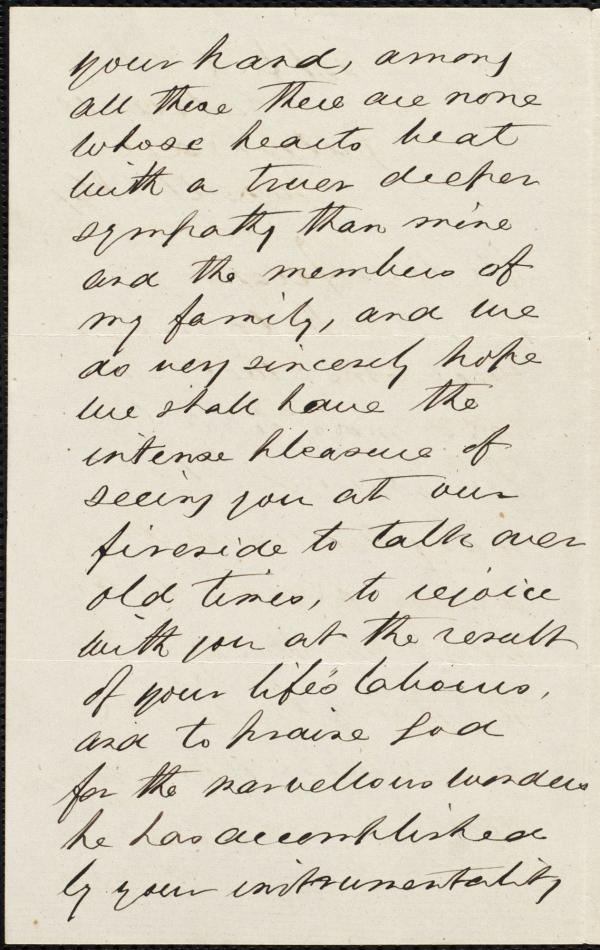 your hand, among
all these there are none
whose hearts beat
with a truer deeper
sympathy than mine
and the members of
my family, and we
do very sincerely hope
we shall have the
intense pleasure of
seeing you at our
fireside to talk over
old times, to rejoice
with you at the result
of your life's labours,
and to praise God
for the marvellous wonders
he has accomplished
by your instrumentality